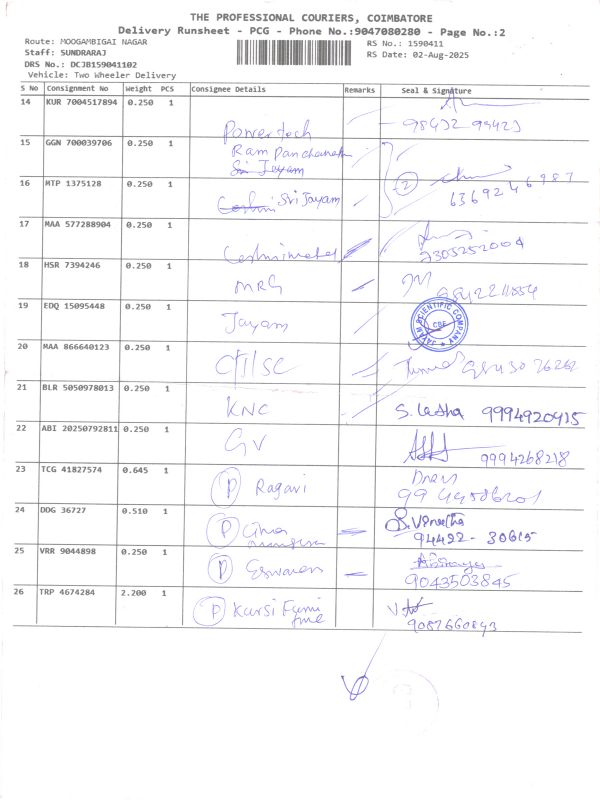 THE PROFESSIONAL COURIERS, COIMBATORE
Delivery Runsheet - PCG - Phone No.:9047080280 - Page No.:2
Route: MOOGAMBIGAI NAGAR RS No.: 1590411
Staff: SUNDRARAJ RS Date: 02-Aug-2025
DRS No.: DCJB159041102
Vehicle: Two Wheeler Delivery
S No Consignment No Weight PCS Consignee Details Remarks Seal & Signature
14 KUR 7004517894 0.250 1
Powertech
15 GGN 700039706 0.250 1
Ram Panchanath
Sri Jayam
16 MTP 1375128 0.250 1
Sri Jayam 2 6369246987
17 MAA 577288904 0.250 1
7305252004
18 HSR 7394246 0.250 1
MRG
19 EDQ 15095448 0.250 1
Jayam JALAM SCIENTIFIC COMPANY CBE
20 MAA 866640123 0.250 1
21 BLR 5050978013 0.250 1
KNC S. Latha 9994920415
22 ABI 20250792811 0.250 1
GV 9994268218
23 TCG 41827574 0.645 1
P Ragavi
24 DDG 36727 0.510 1
P S. Vineetha
94422-30615
25 VRR 9044898 0.250 1
P Eswaran
9043503845
26 TRP 4674284 2.200 1
P Kursi Furni
9087660843